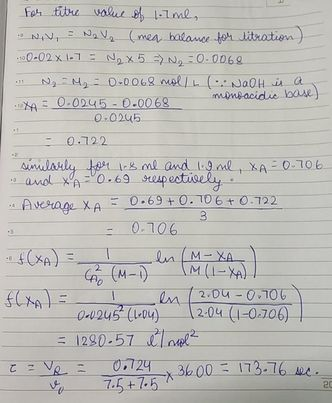 For titre value of 1.7 ml,
N₁V₁ = N₂V₂ (meq balance for titration)
0.02 × 1.7 = N₂ × 5 ⇒ N₂ = 0.0068
N₂ = M₂ = 0.0068 mol/L (∵ NaOH is a monoacidic base)
XA = 0.0245 - 0.0068 / 0.0245
= 0.722
similarly for 1.8 ml and 1.9 ml, XA = 0.706
and XA = 0.69 respectively.
Average XA = 0.69 + 0.706 + 0.722 / 3
= 0.706
f(XA) = 1 / CA₀² (M-1) ln (M - XA / M(1 - XA))
f(XA) = 1 / 0.0245² (1.04) ln (2.04 - 0.706 / 2.04 (1 - 0.706))
= 1280.57 l²/mol²
τ = VR / v₀ = 0.724 / 7.5 + 7.5 × 3600 = 173.76 sec.